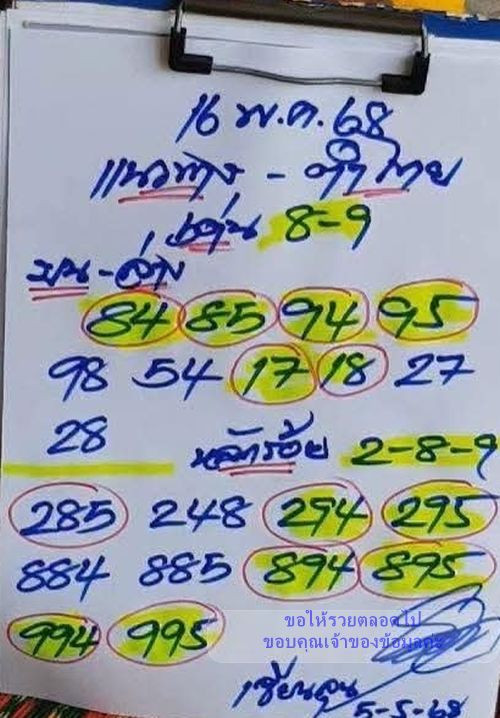 16 พ.ค. 68
แนวทาง - กำไาย
เด่น 8-9
บน-ล่าง
84 85 94 95
98 54 17 18 27
28
หลักร้อย 2-8-9
285 248 294 295
884 885 894 895
994 995
ขอให้รวยตลอดไป
ขอบคุณเจ้าของข้อมูลค่ะ
เซียนลุน
5-5-68